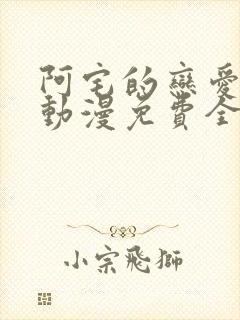 阿宅的戀愛
動漫免費全
小宗飛獅